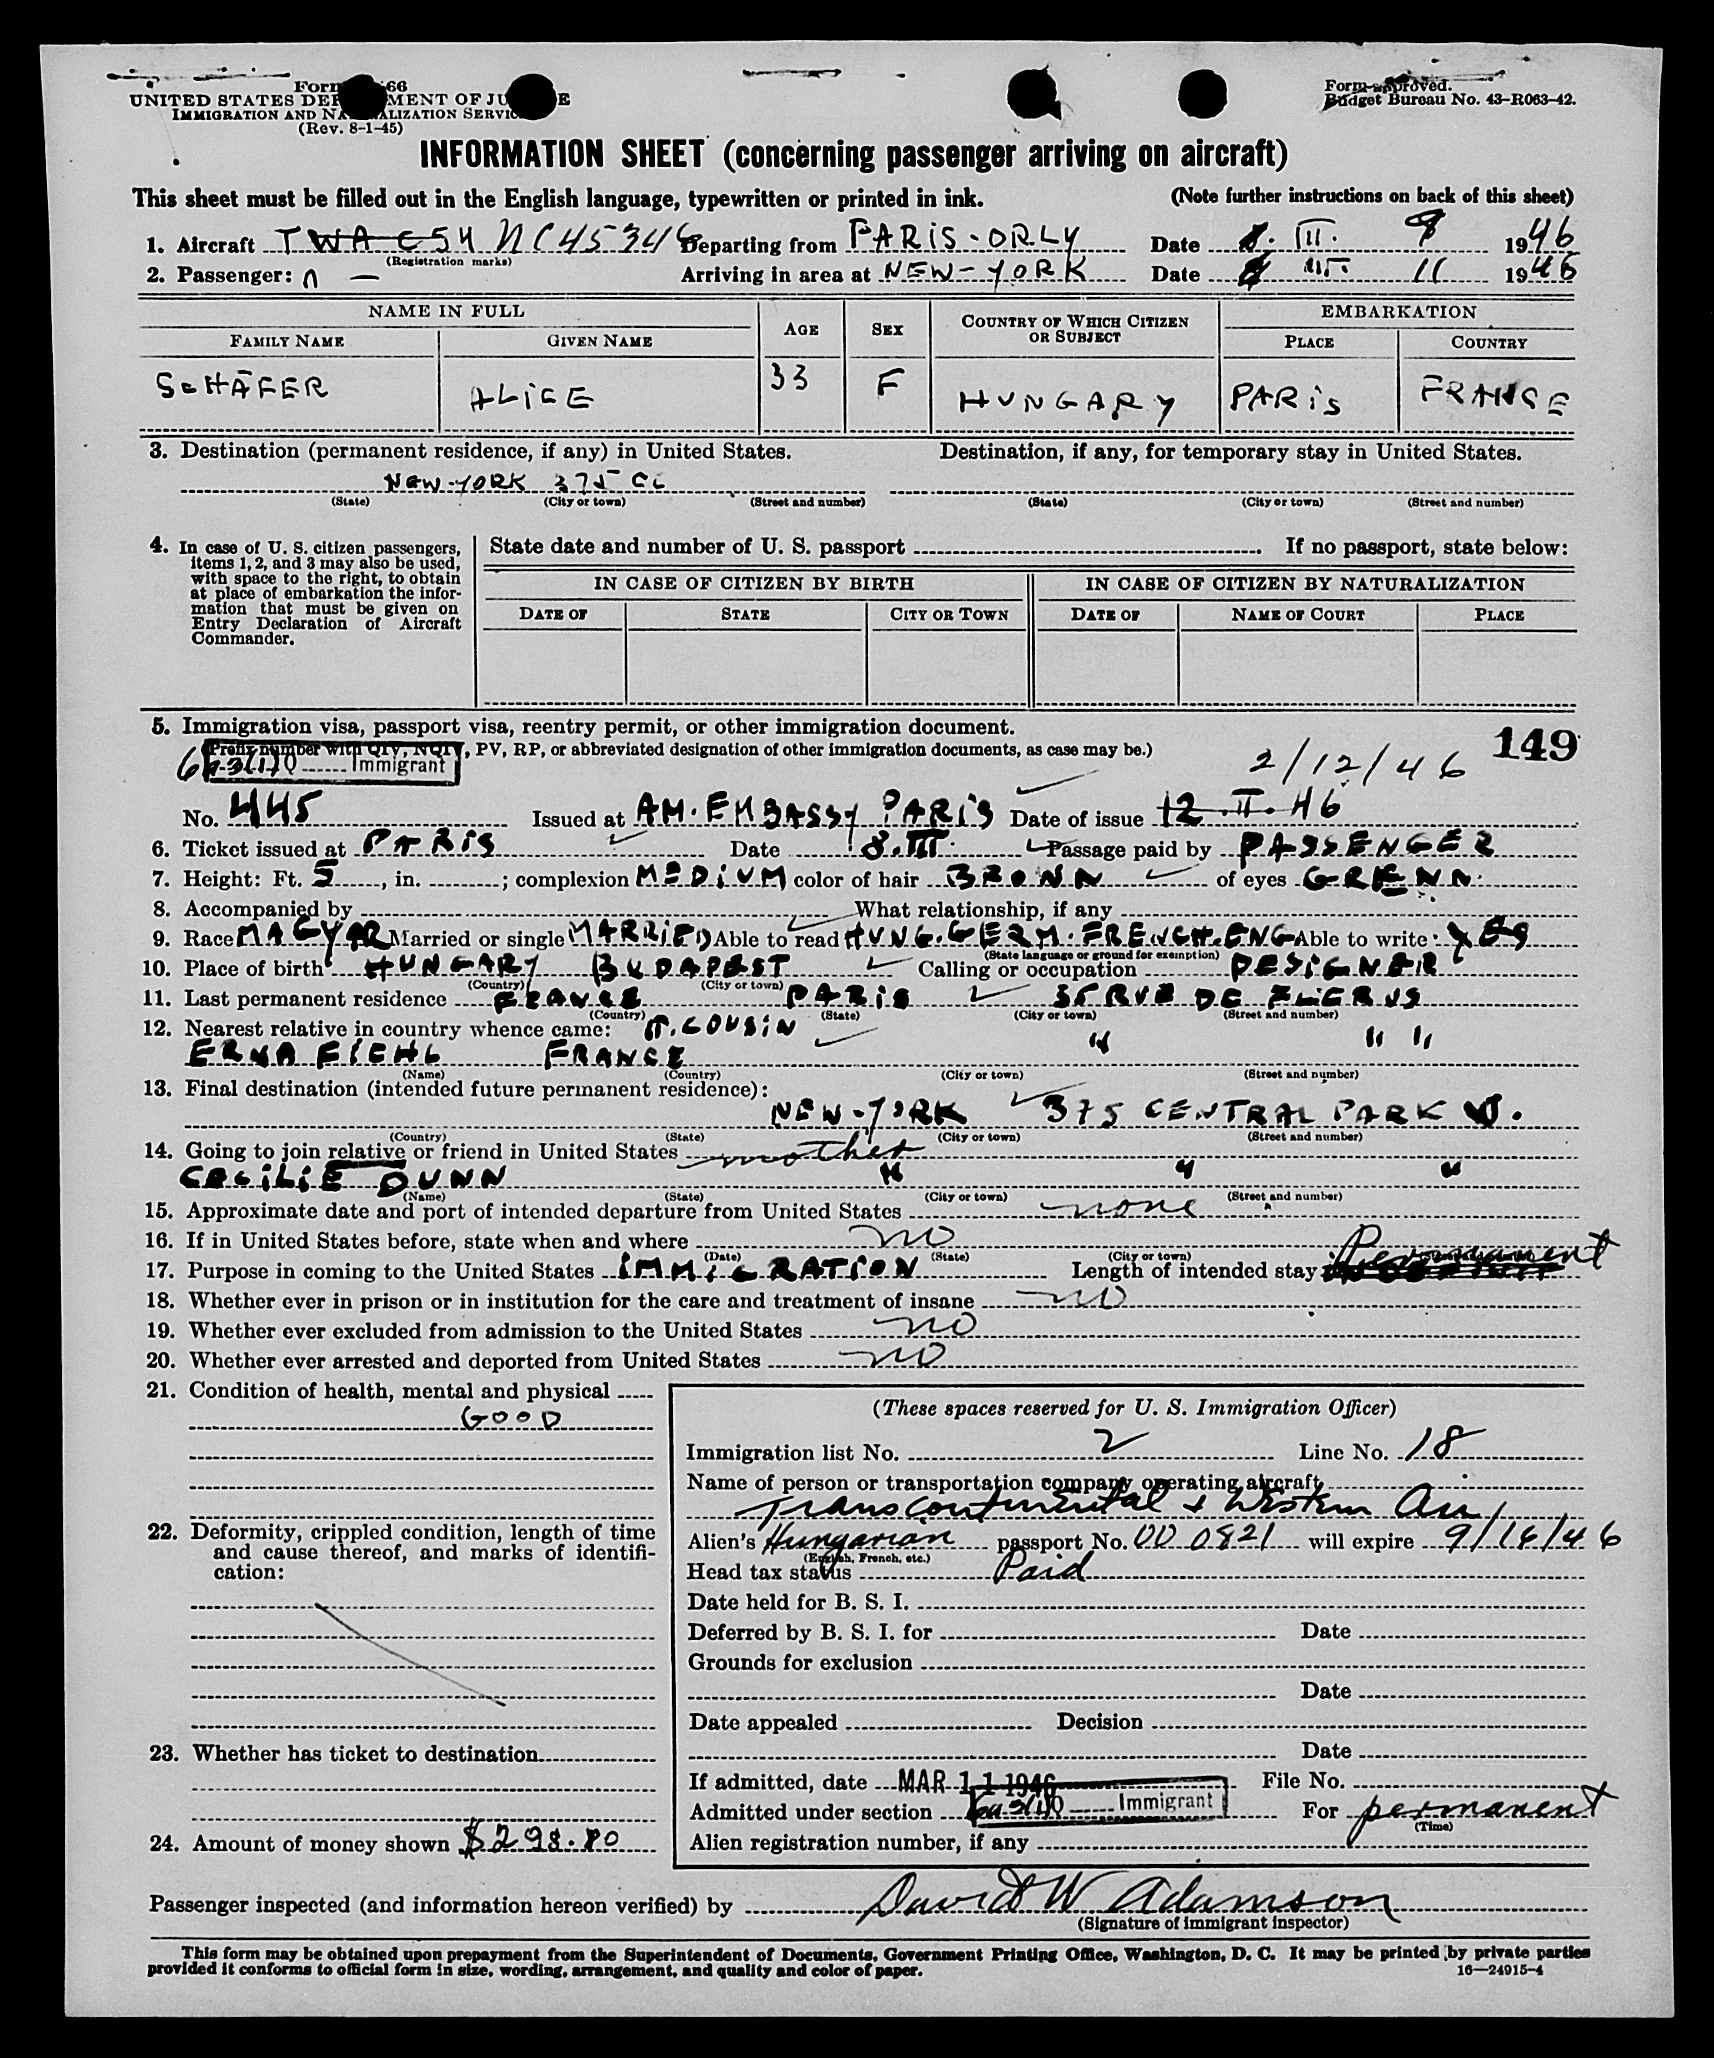 Form 66
UNITED STATES DEPARTMENT OF JUSTICE
IMMIGRATION AND NATURALIZATION SERVICE
(Rev. 8-1-45)
Form approved.
Budget Bureau No. 43-R063-42.
INFORMATION SHEET (concerning passenger arriving on aircraft)
This sheet must be filled out in the English language, typewritten or printed in ink. (Note further instructions on back of this sheet)
1. Aircraft TWA C54 NC45346 Departing from PARIS-ORLY Date 8. III. 9 1946
(Registration marks)
2. Passenger: Arriving in area at NEW-YORK Date III. 11 1946
NAME IN FULL AGE SEX COUNTRY OF WHICH CITIZEN OR SUBJECT EMBARKATION
FAMILY NAME GIVEN NAME PLACE COUNTRY
SCHÄFER ALICE 33 F HUNGARY PARIS FRANCE
3. Destination (permanent residence, if any) in United States. Destination, if any, for temporary stay in United States.
NEW-YORK 375
(State) (City or town) (Street and number) (State) (City or town) (Street and number)
4. In case of U. S. citizen passengers,
items 1, 2, and 3 may also be used,
with space to the right, to obtain
at place of embarkation the infor-
mation that must be given on
Entry Declaration of Aircraft
Commander.
State date and number of U. S. passport . If no passport, state below:
IN CASE OF CITIZEN BY BIRTH IN CASE OF CITIZEN BY NATURALIZATION
DATE OF STATE CITY OR TOWN DATE OF NAME OF COURT PLACE
5. Immigration visa, passport visa, reentry permit, or other immigration document.
(Prefix number with QIV, NQIV, PV, RP, or abbreviated designation of other immigration documents, as case may be.) 149
Immigrant 2/12/46
No. 445 Issued at AM. EMBASSY PARIS Date of issue 12. II. 46
6. Ticket issued at PARIS Date 8. III. Passage paid by PASSENGER
7. Height: Ft. 5, in. ; complexion MEDIUM color of hair BROWN of eyes GREENN
8. Accompanied by What relationship, if any
9. Race MAGYAR Married or single MARRIED Able to read HUNG. GERM. FRENCH. ENG Able to write YES
(State language or ground for exemption)
10. Place of birth HUNGARY BUDAPEST Calling or occupation DESIGNER
(Country) (City or town)
11. Last permanent residence FRANCE PARIS
(Country) (State) (City or town) (Street and number)
12. Nearest relative in country whence came: COUSIN
ERNA EICHL FRANCE " " "
(Name) (Country) (City or town) (Street and number)
13. Final destination (intended future permanent residence):
NEW-YORK 375 CENTRAL PARK W.
(Country) (State) (City or town) (Street and number)
14. Going to join relative or friend in United States mother
CECILIE DUNN " " "
(Name) (State) (City or town) (Street and number)
15. Approximate date and port of intended departure from United States none
16. If in United States before, state when and where no
(Date) (State) (City or town)
17. Purpose in coming to the United States IMMIGRATION Length of intended stay Permanent
18. Whether ever in prison or in institution for the care and treatment of insane no
19. Whether ever excluded from admission to the United States no
20. Whether ever arrested and deported from United States no
21. Condition of health, mental and physical
GOOD
22. Deformity, crippled condition, length of time
and cause thereof, and marks of identifi-
cation:
23. Whether has ticket to destination
24. Amount of money shown $298.80
(These spaces reserved for U. S. Immigration Officer)
Immigration list No. 2 Line No. 18
Name of person or transportation company operating aircraft
Transcontinental & Western Air
Alien's Hungarian passport No. 00 0821 will expire 9/16/46
(English, French, etc.)
Head tax status Paid
Date held for B. S. I.
Deferred by B. S. I. for Date
Grounds for exclusion
Date
Date appealed Decision
Date
If admitted, date MAR 11 1946 File No.
Admitted under section Immigrant For permanent
(Time)
Alien registration number, if any
Passenger inspected (and information hereon verified) by David W Adamson
(Signature of immigrant inspector)
This form may be obtained upon prepayment from the Superintendent of Documents, Government Printing Office, Washington, D. C. It may be printed by private parties
provided it conforms to official form in size, wording, arrangement, and quality and color of paper. 16—24915-4